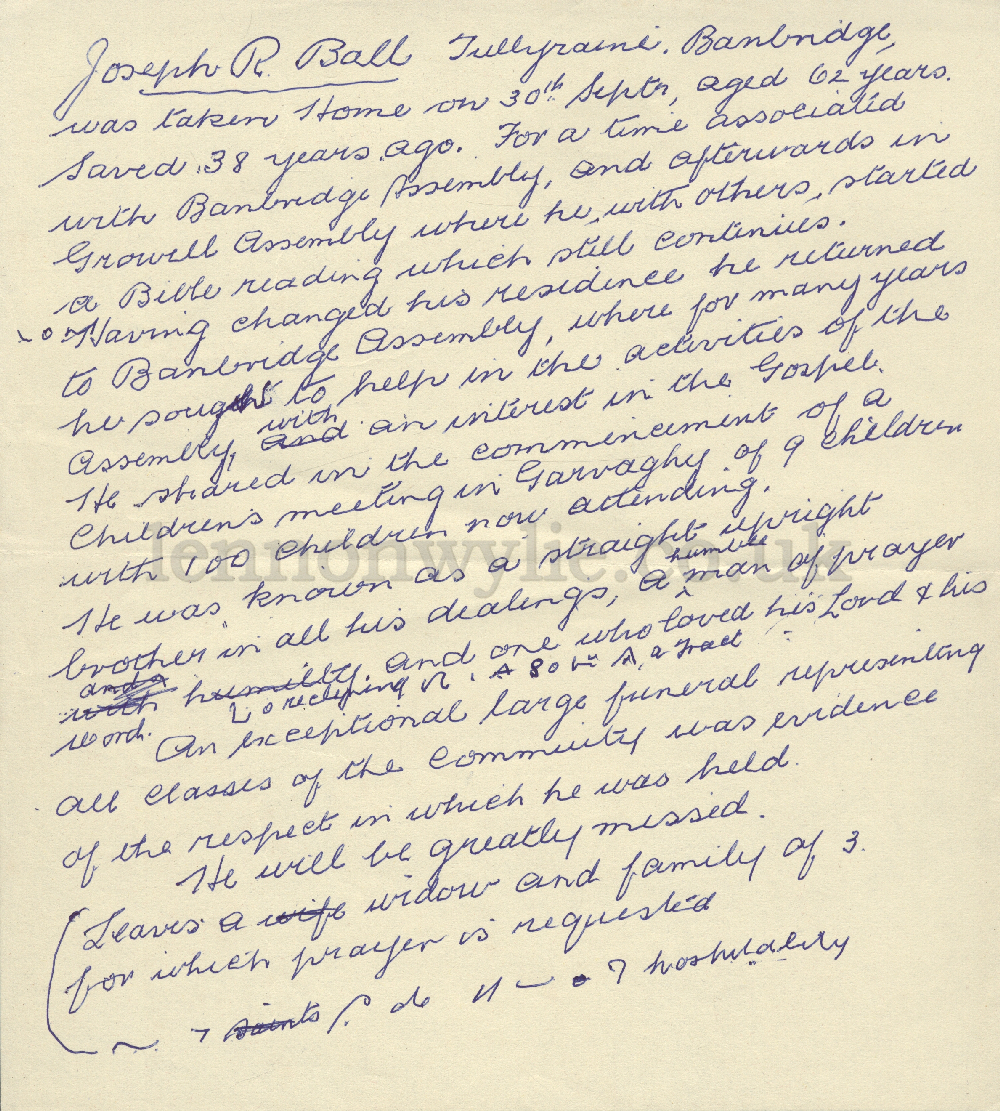 Joseph R. Ball Tullyraine, Banbridge,
was taken Home on 30th Septr, aged 62 years.
Saved 38 years ago. For a time associated
with Banbridge Assembly, and afterwards in
Growell Assembly where he, with others, started
a Bible reading which still continues.
Having changed his residence he returned
to Banbridge Assembly, where for many years
he sought to help in the activities of the
with
Assembly, and an interest in the Gospel.
He shared in the commencement of a
Children's meeting in Garvaghy of 9 children
with 100 children now attending.
lennonwylie.co.uk
He was known as a straight upright
humble
brother in all his dealings, a man of prayer
and a
with humility, and one who loved his Lord & his
word.
80 a Tract
An exceptional large funeral representing
all classes of the Commuity was evidence
of the respect in which he was held.
He will be greatly missed.
(Leaves a wife widow and family of 3.
for which prayer is requested
saints do hospitality